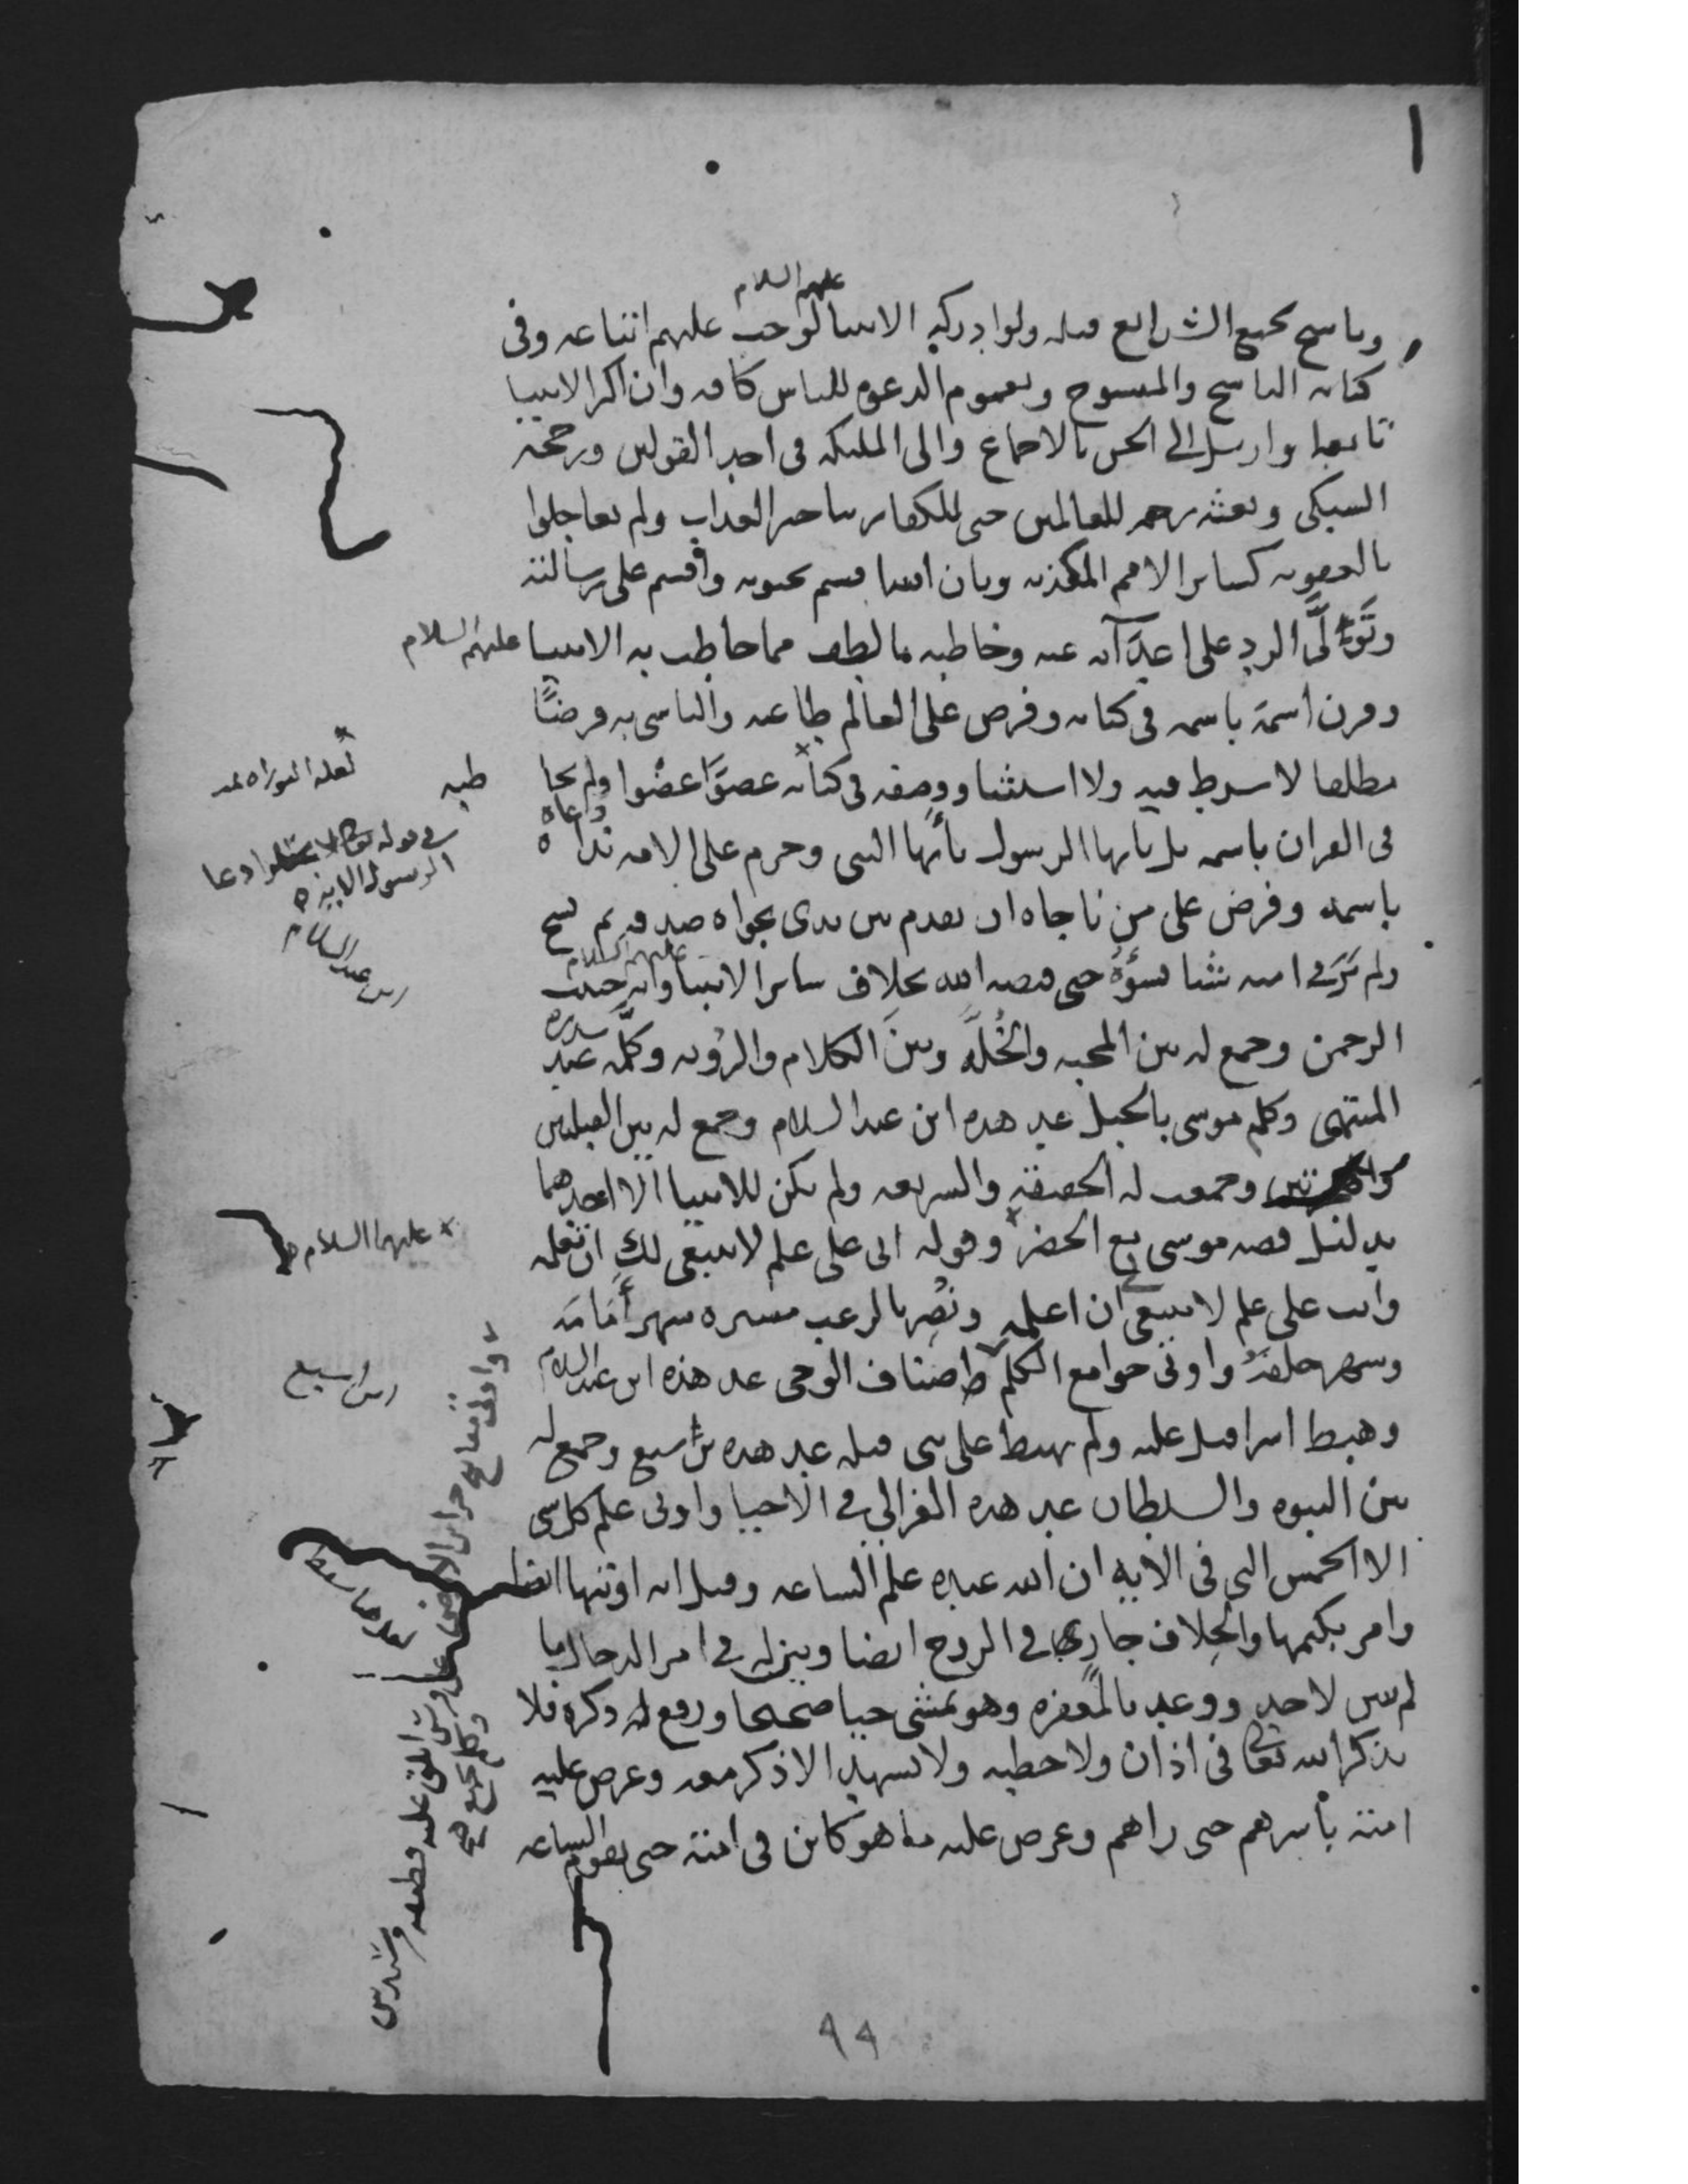 عليهم السلام
وناسخ لجميع الشرايع قبله ولو ادركه الانبيا لوجب عليهم اتباعه وفى
كتابه الناسخ والمنسوخ وبعموم الدعوه للناس كافه وان اكثر الانبيا
تابعا وارسل الى الجن بالاجماع والى الملئكه فى احد القولين ورجحه
السبكى وبعثه رحمه للعالمين حتى للكفار بتاخير العذاب ولم يعاجلوا
بالعقوبه كساير الامم المكذبه وبان الله اقسم بحيوته واقسم على رسالته
وتَوَلَّى الرد على اعدَآئه عنه وخاطبه بالطف مما خاطب به الانبيا عليهم السلام
وقرن اسمه باسمه فى كتابه وفرض على العالم طاعته والتاسى به فرضًا
مطلقا لا شرط فيه ولا استثنا ووصفه فى كتابه عضوًا عضوا ولم يخا
طبه
فى القران باسمه بل يايها الرسول يأيها النبى وحرم على الامه نداه
باسمه وفرض على من ناجاه ان يقدم بين يدى نجواه صدقه ثم نسخ
ولم يَرَ فى امته شيا يسؤُهُ حتى قبضه الله بخلاف ساير الانبيا وانه حبيب
عليهم السلام
الرحمن وجمع له بين المحبه والخُلَّه وبينَ الكلام والرُؤيه وكلَّمه عند سدره
المنتهى وكلم موسى بالجبل عد هذه ابن عبد السلام وجمع له بين القبلتين
والهجرتين وجمعت له الحقيقه والشريعه ولم يكن للانبيا الا احدهما
بدليل قصه موسى مع الخضر وقوله انى على علم لا ينبغى لك ان تعلمه
وانت على علم لا ينبغى ان اعلمه ونُصِر بالرعب مسيره شهر أَمَامَه
وشهر خلفه واوتى جوامع الكلم واصناف الوحى عد هذه ابن عبد السلام
وهبط اسرافيل عليه ولم يهبط على نبى قبله عد هذه بن سبع وجمع له
بين النبوه والسلطان عد هذه الغزالى فى الاحيا واوتى علم كل شى
الا الخمس التى فى الايه ان الله عنده علم الساعه وقيل انه اوتيها ايضا
وامر بكتمها والخلاف جار فى الروح ايضا وبين له فى امر الدجال ما
لم يبين لاحد ووعد بالمغفره وهو يمشى حيا صحيحا ورفع له ذكره فلا
يذكر الله تعالى فى اذان ولا خطبه ولا تشهد الا ذكر معه وعرض عليه
امته بأسرهم حتى راهم وعرض عليه ما هو كاين فى امته حتى تقوم الساعه
لعله التوراه
فى قوله تعالى لا تجعلوا دعا
الرسول الايه
ابن عبد السلام
عليهما السلام
ابن سبع
واوتى مفاتيح خزاين الارض على فرس ابلق عليه قطيفه
٩٩